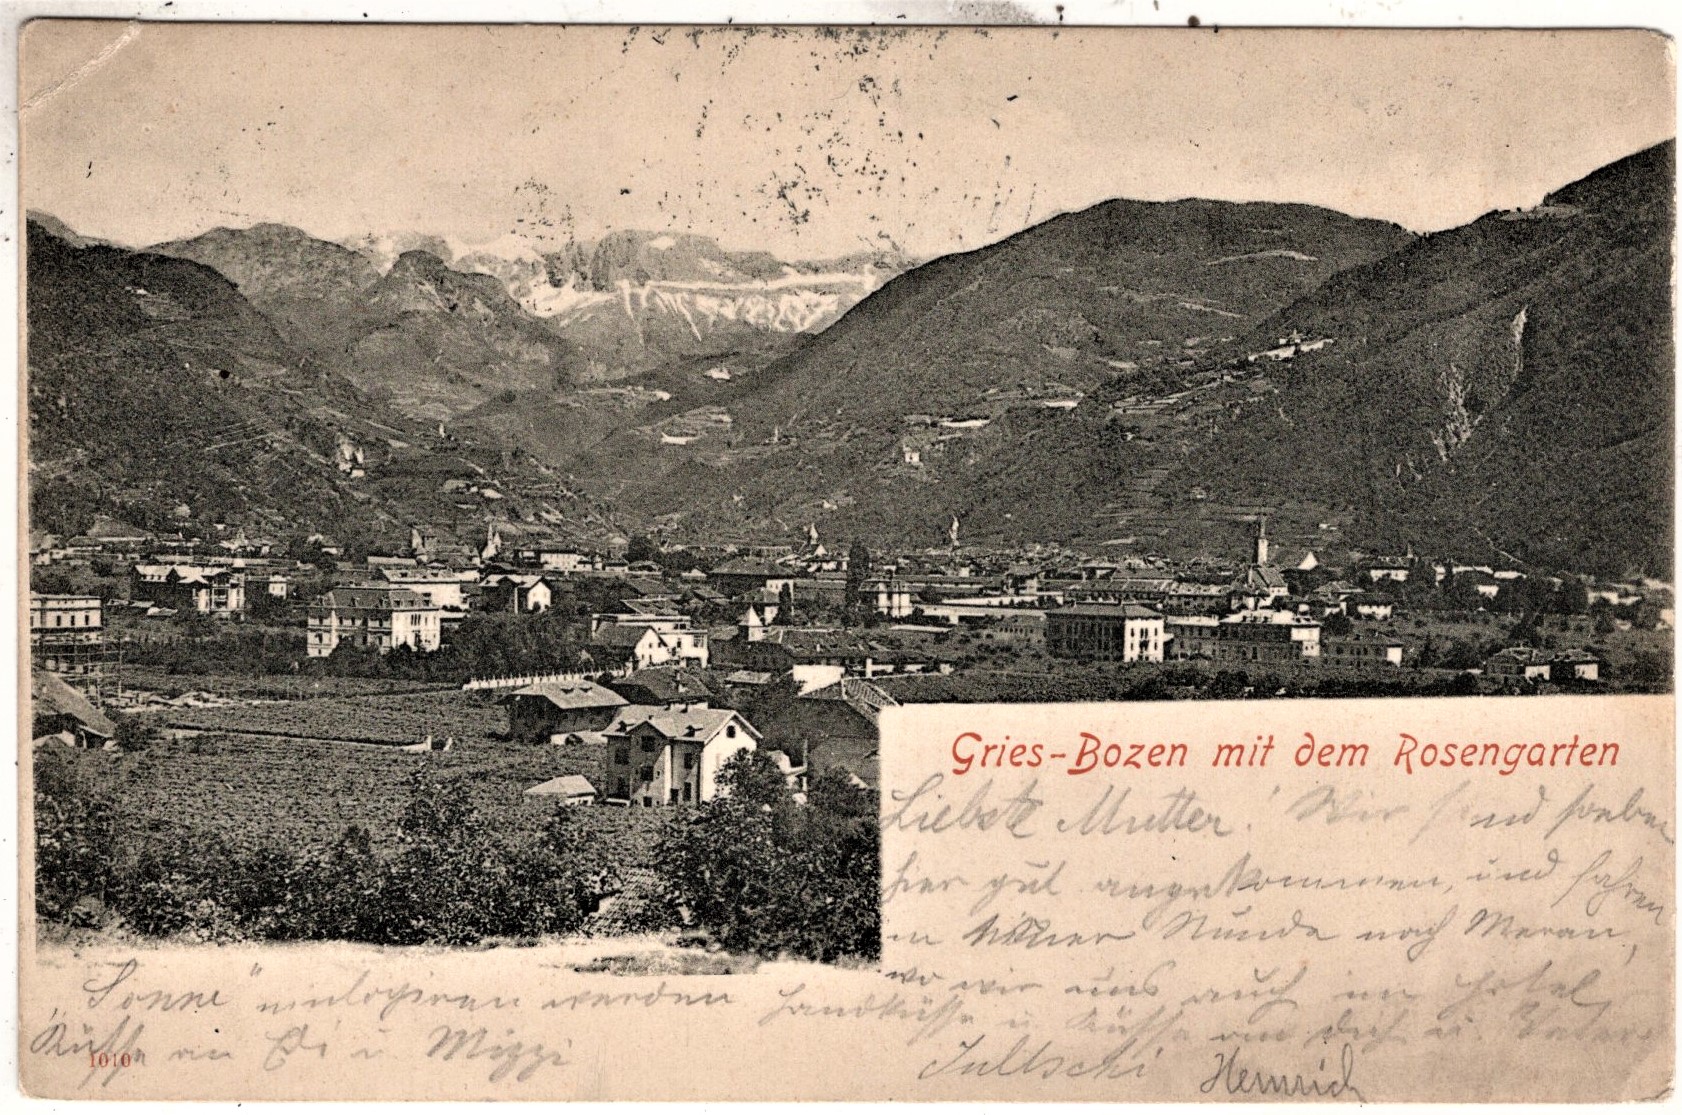 Gries-Bozen mit dem Rosengarten
Liebste Mutter! Wir sind soeben
hier gut angekommen, und fahren
in einer Stunde nach Meran,
wo wir uns auch im Hotel
„Sonne" einlogieren werden Handküsse u. Küsse an dich u.
Küsse an u Mizzi
Heinrich
1010